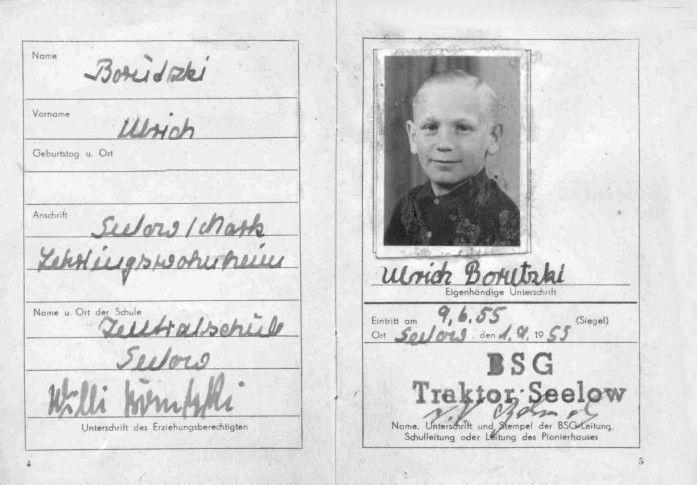 Name
Vorname
Ulrich
Geburtstag u. Ort
Anschrift
Seelow/Mark
Lehrlingswohnheim
Name u. Ort der Schule
Zentralschule
Seelow
Willi
Unterschrift des Erziehungsberechtigten
4
Ulrich Borutzki
Eigenhändige Unterschrift
Eintritt am 9.6.55 (Siegel)
Ort Seelow, den 1.9.1955
BSG
Traktor Seelow
Name, Unterschrift und Stempel der BSG-Leitung,
Schulleitung oder Leitung des Pionierhauses
5